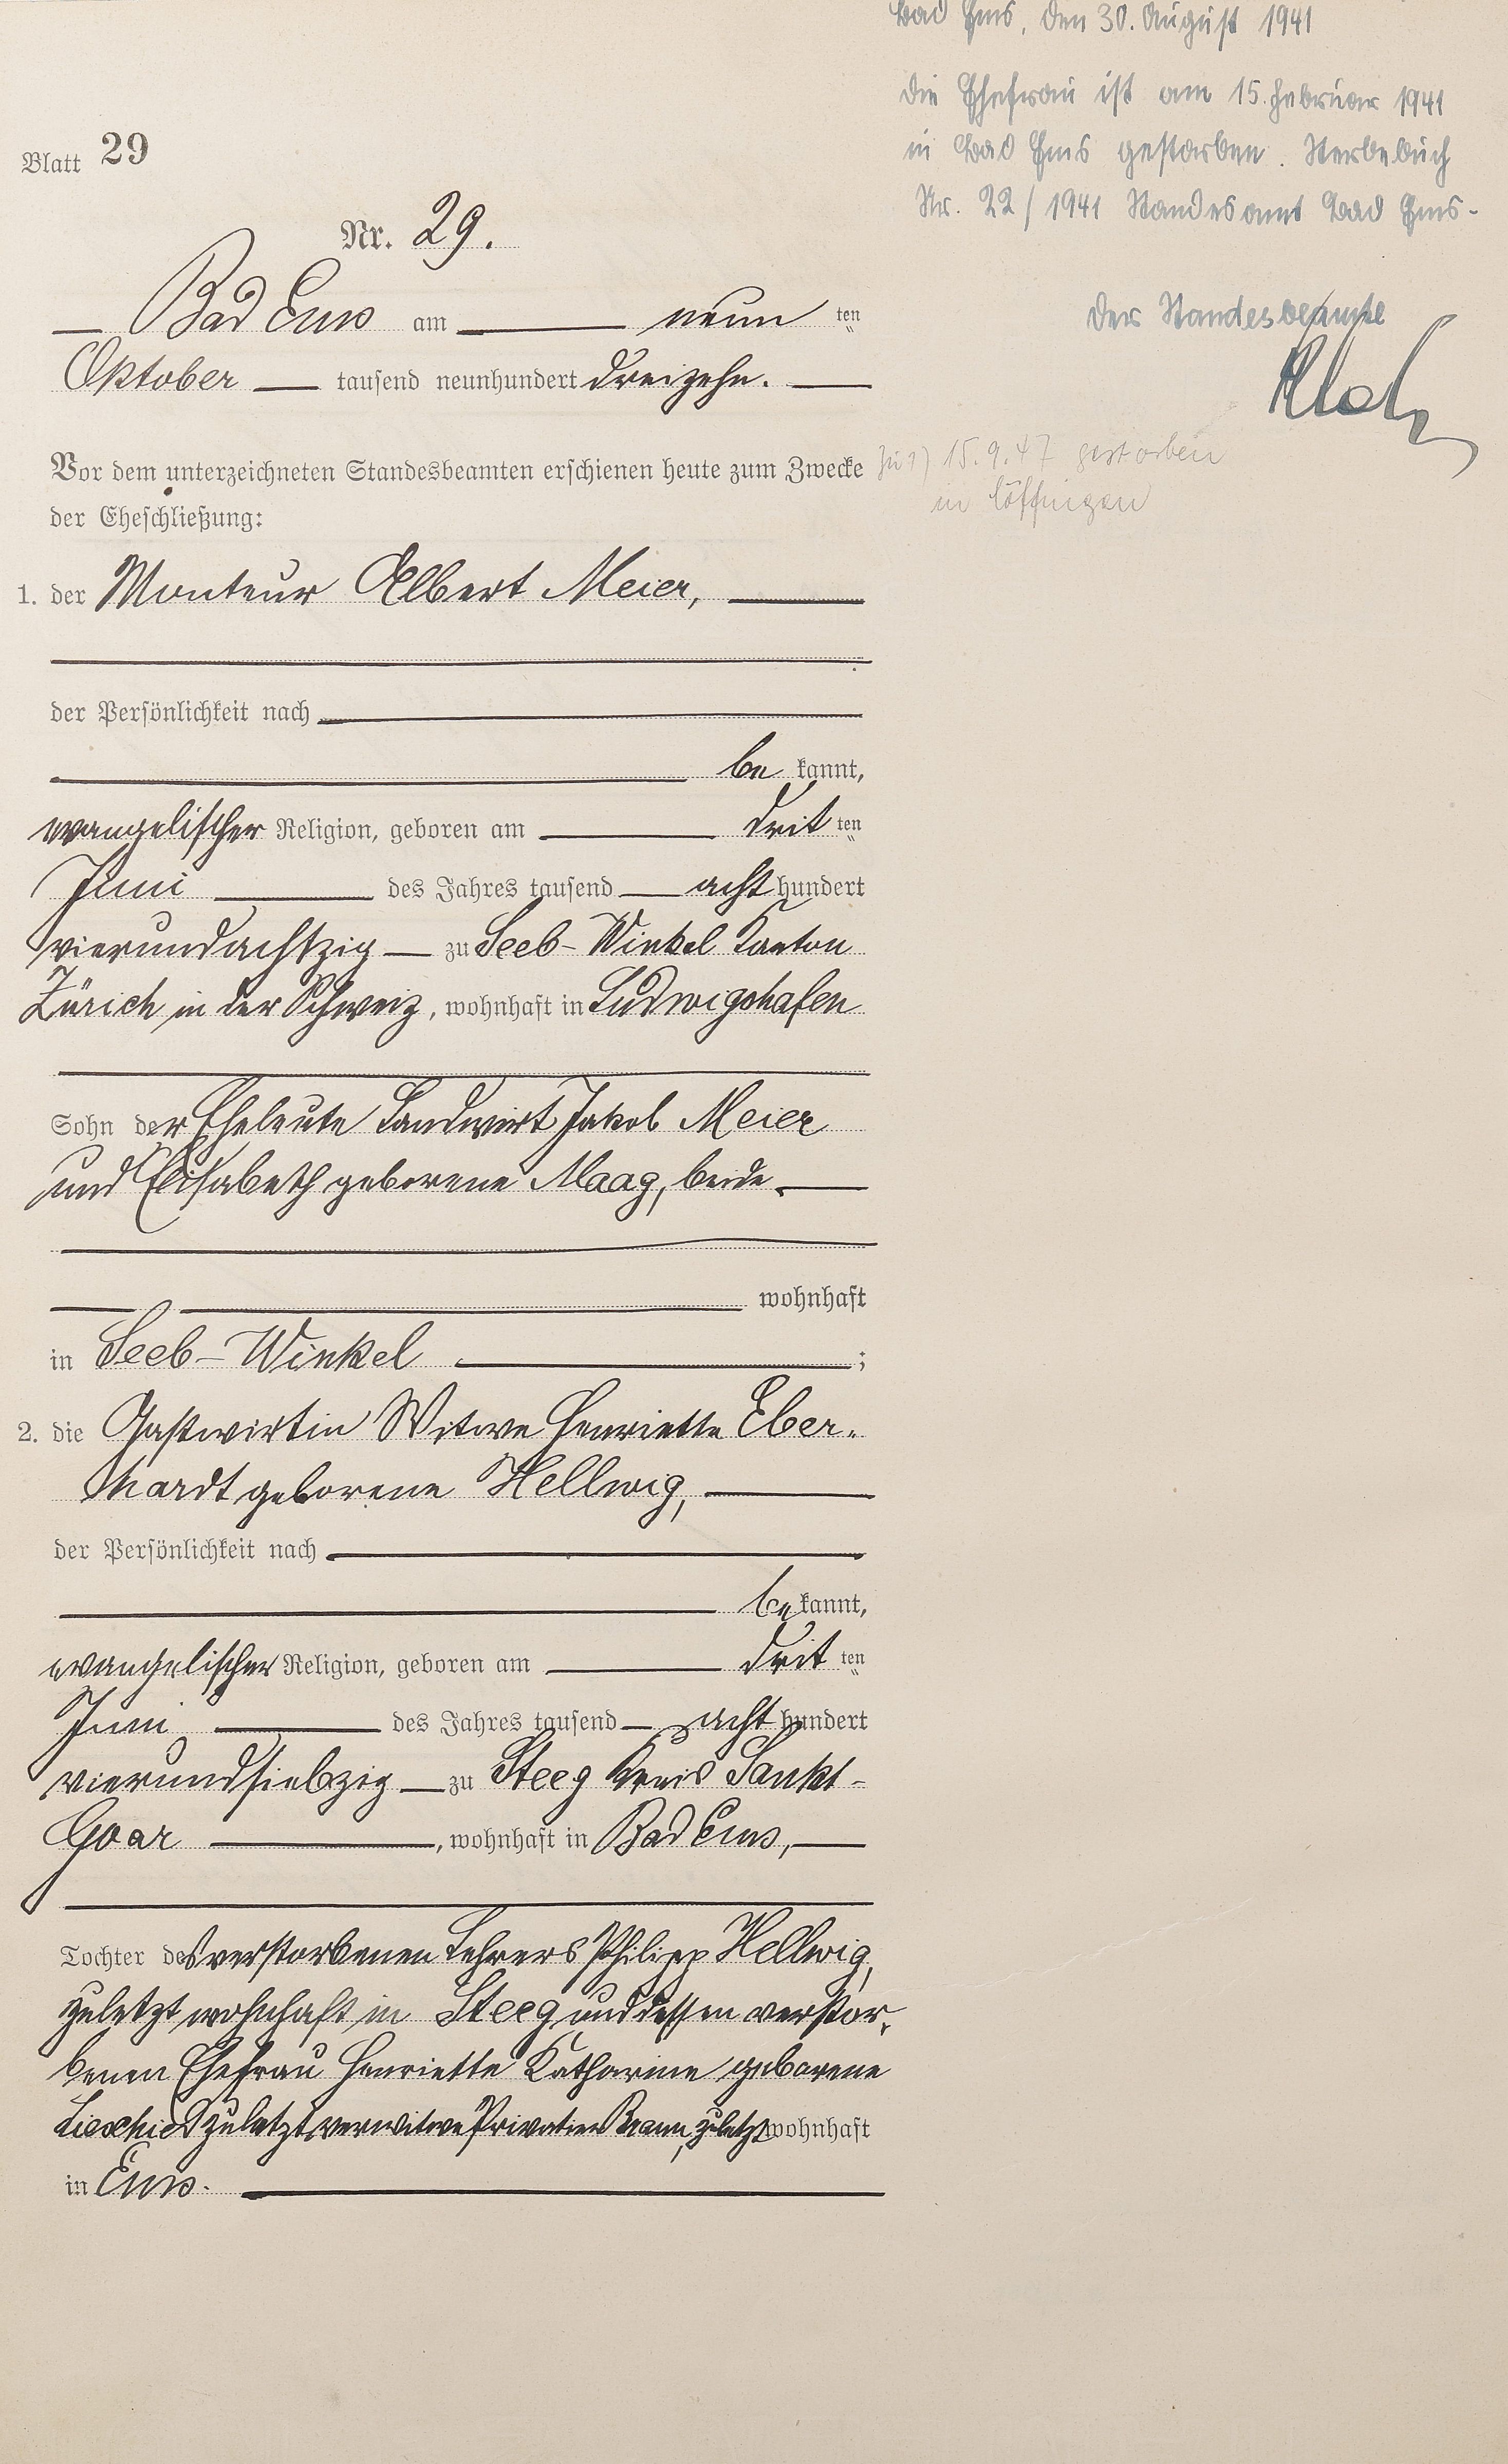 Bad Ems, den 30. August 1941
Die Ehefrau ist am 15. Februar 1941
in Bad Ems gestorben. Sterbebuch
Nr. 22/1941 Standesamt Bad Ems-
Der Standesbeamte
Zu 1) 15.9.47 gestorben
in Löffingen
Blatt 29
Nr. 29.
Bad Ems am neun ten
Oktober tausend neunhundert dreizehn.
Vor dem unterzeichneten Standesbeamten erschienen heute zum Zwecke
der Eheschließung:
1. der Monteur Albert Meier,
der Persönlichkeit nach
be kannt,
evangelischer Religion, geboren am drit ten
Juni des Jahres tausend acht hundert
vierundachtzig zu Seeb-Winkel Kanton
Zürich in der Schweiz, wohnhaft in Ludwigshafen
Sohn der Eheleute Landwirt Jakob Meier
und Elisabeth geborene Maag, beide
wohnhaft
in Seeb-Winkel ;
2. die Gastwirtin Witwe Henriette Eber-
hardt geborene Hellwig,
der Persönlichkeit nach
be kannt,
evangelischer Religion, geboren am drit ten
Juni des Jahres tausend acht hundert
vierundsiebzig zu Steeg Kreis Sankt-
Goar , wohnhaft in Bad Ems,
Tochter des verstorbenen Lehrers Philipp Hellwig,
zuletzt wohnhaft in Steeg und dessen verstor-
benen Ehefrau Henriette Katharine geborene
zuletzt verwitwe Privatier zuletzt wohnhaft
in Ems.